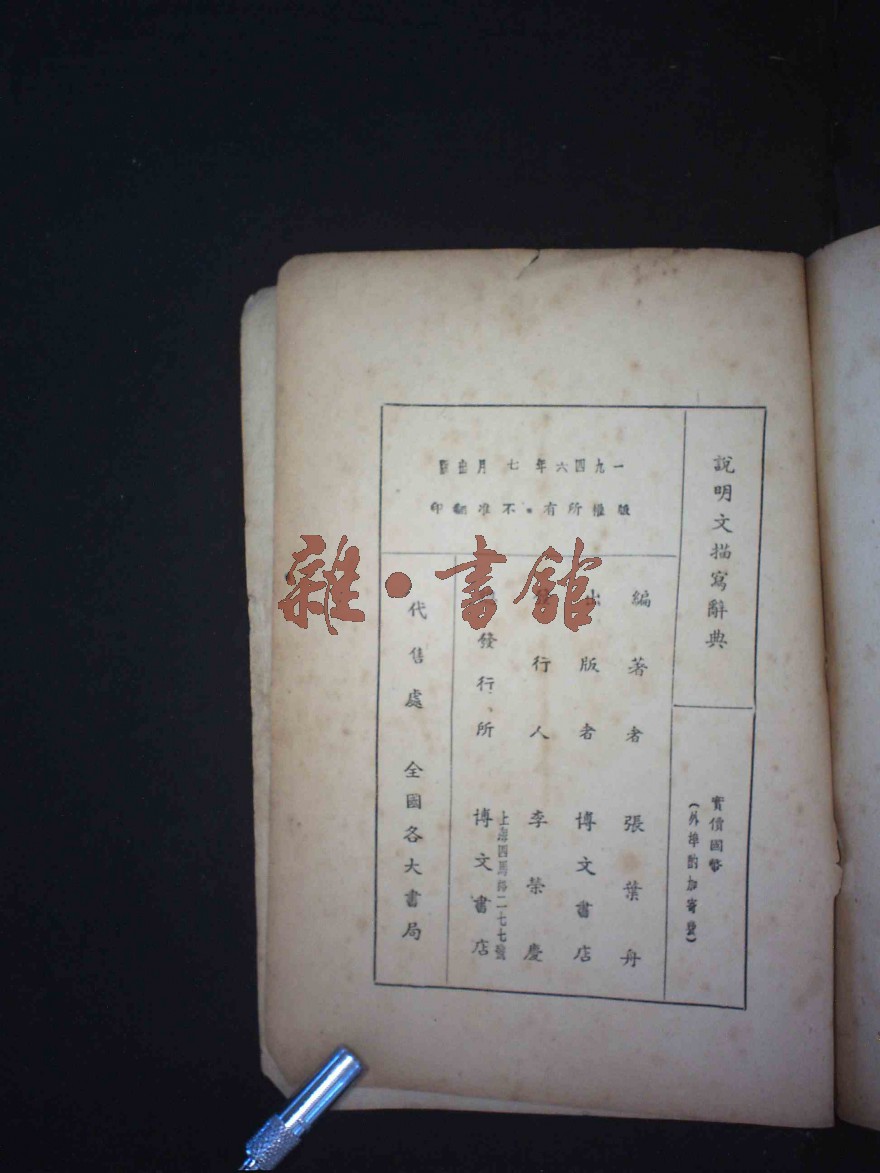 說明文描寫辭典
實價國幣
(外埠酌加寄費)
一九四六年七月出版
版權所有•不准翻印
編著者 張葉舟
出版者 博文書店
發行人 李榮慶
發行所 博文書店
上海四馬路二七七號
代售處 全國各大書局
雜•書館